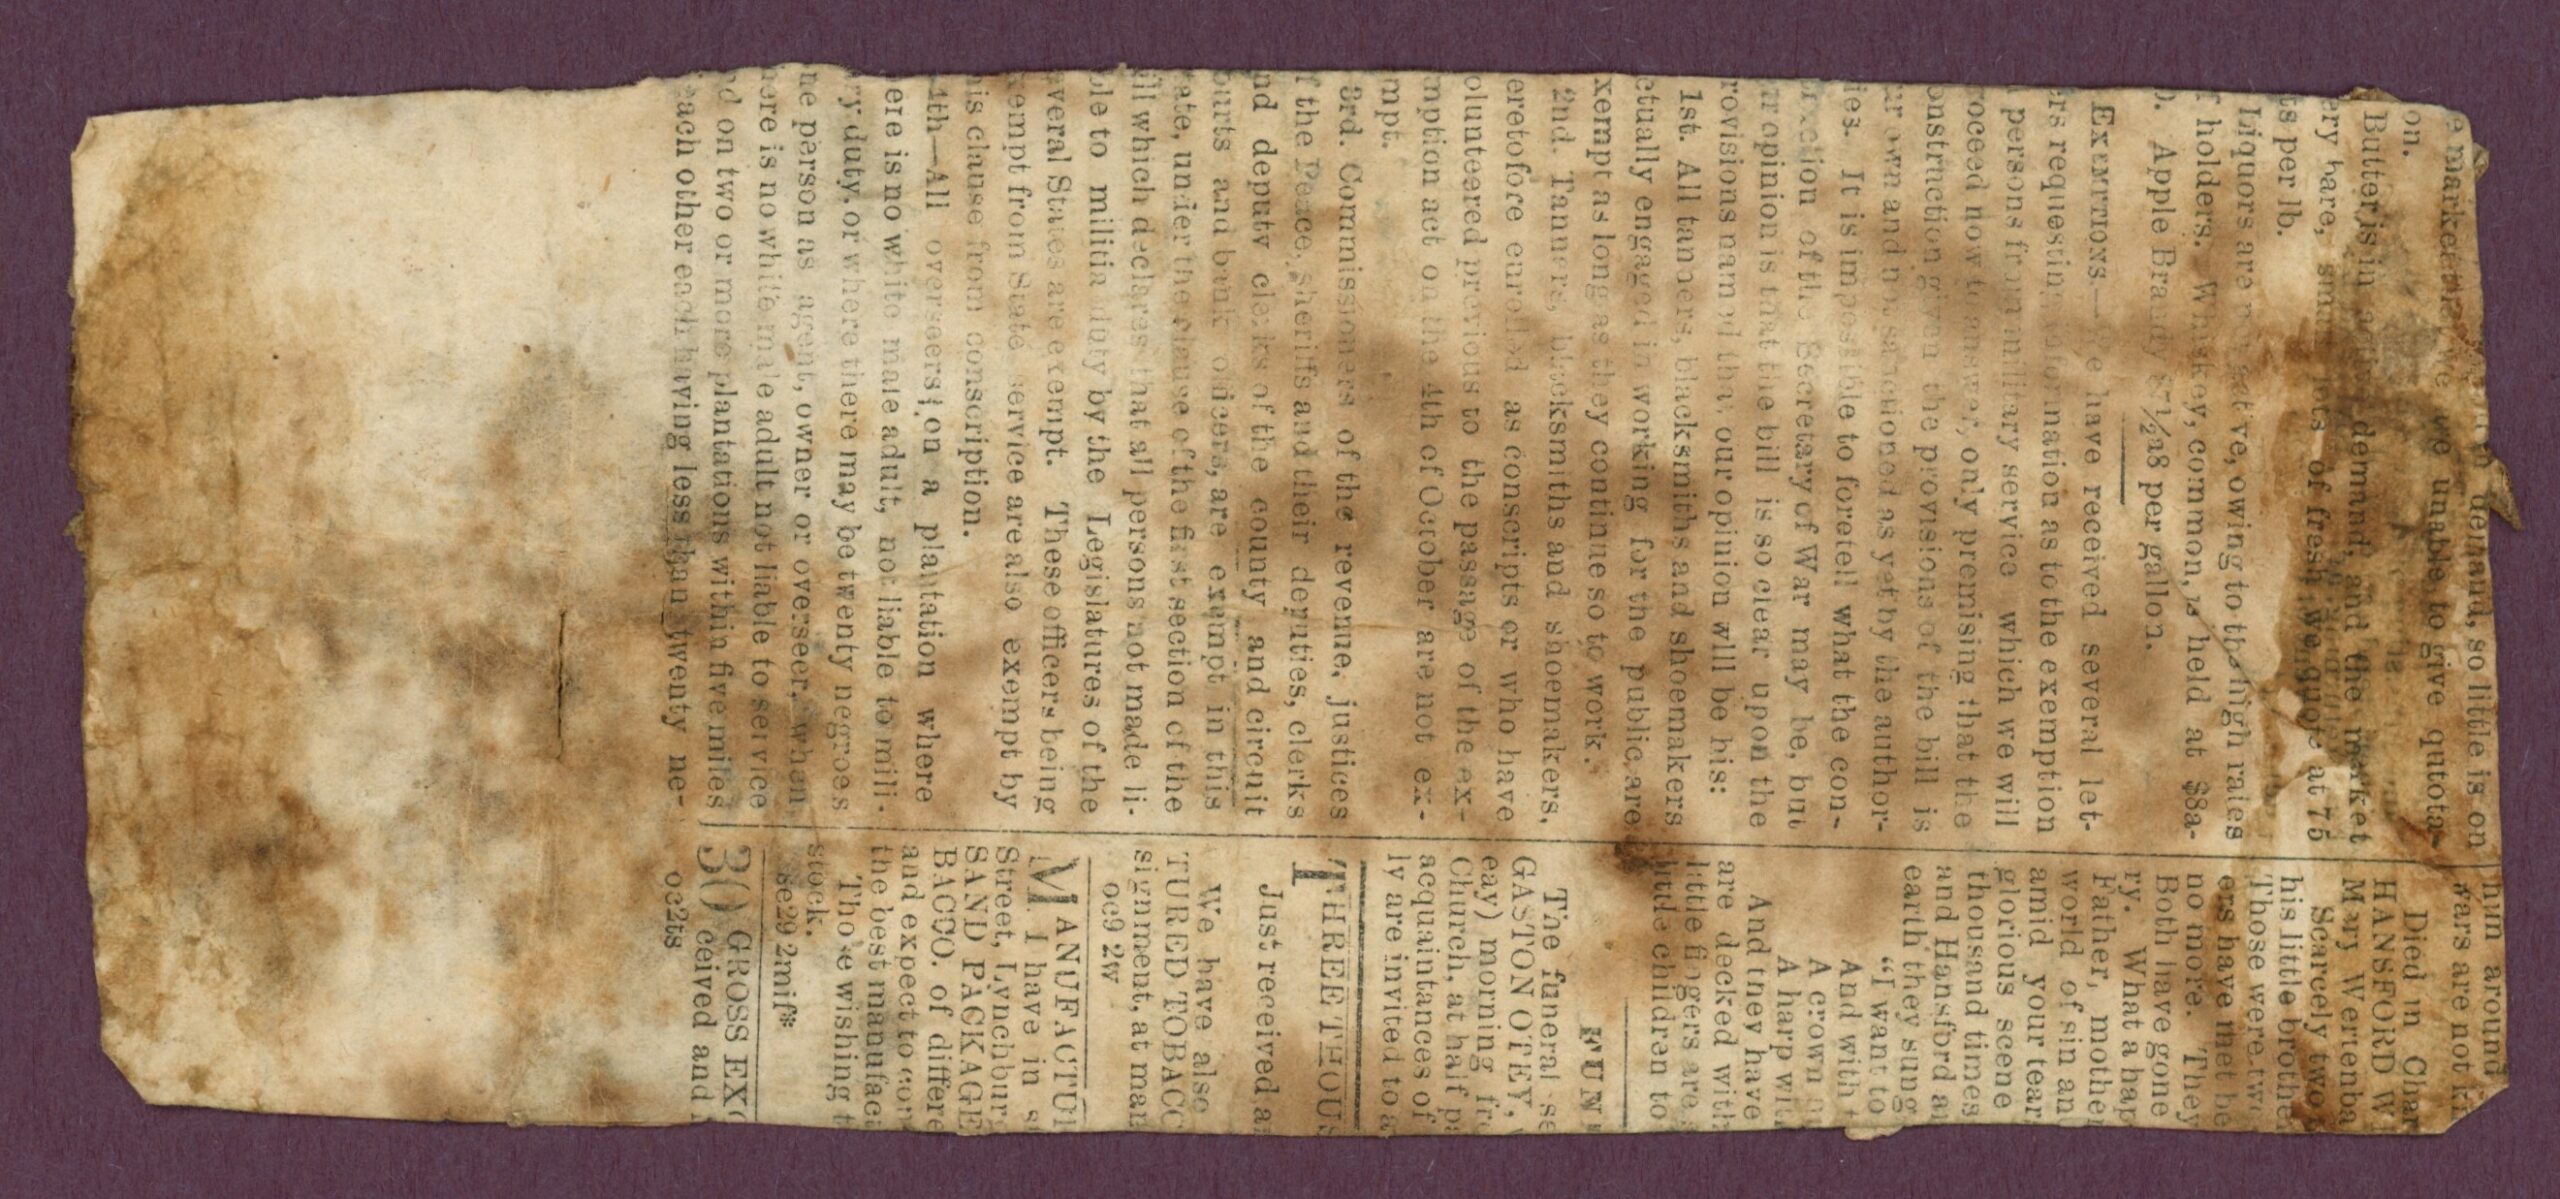 e market
demand, so little is on
we unable to give qutota-
on.
Butter is in demand, and the market
ery bare, lots of fresh we quote at 75
ts per lb.
Liquors are owing to the high rates
f holders. Whiskey, common, is held at $8a-
). Apple Brandy $7½a8 per gallon.
EXEMTIONS.— have received several let-
ers requesting information as to the exemption
persons from military service which we will
roceed now to answer, only premising that the
onstruction given the provisions of the bill is
ur own and not sanctioned as yet by the author-
ies. It is impossible to foretell what the con-
tion of the Secretary of War may be, but
ur opinion is that the bill is so clear upon the
rovisions named that our opinion will be his:
1st. All tanners, blacksmiths and shoemakers
ctually engaged in working for the public, are
xempt as long as they continue so to work.
2nd. Tanners, blacksmiths and shoemakers,
eretofore enrolled as conscripts or who have
olunteered previous to the passage of the ex-
mption act on the 4th of October are not ex-
mpt.
3rd. Commissioners of the revenue, justices
f the Peace, sheriffs and their deputies, clerks
nd deputy clerks of the county and circuit
ourts and bank officers, are exempt in this
tate, under the clause of the first section of the
ill which declares that all persons not made li-
ble to militia duty by the Legislatures of the
everal States are exempt. These officers being
xempt from State service are also exempt by
his clause from conscription.
4th—All overseers on a plantation where
ere is no white male adult, not liable to mili-
ry duty, or where there may be twenty negroes
ne person as agent, owner or overseer, when
here is no white male adult not liable to service
nd on two or more plantations within five miles
each other each having less than twenty ne-
him around
wars are not
Died in Char
HANSFORD W
Mary Werienba
Scarcely two
his little brother
Those were two
ers have met be
no more. They
Both have gone
ry. What a hap
Father, mother
world of sin an
amid your tear
glorious scene
thousand times
and Hansford a
earth they sung
"I want to
And with
A crown
A harp wit
And tney have
are decked with
little fingers are
little children to
FUN
The funeral se
GASTON OTEY,
eay) morning fr
Church, at half p
acquaintances of
ly are invited to a
THREE THOUS
Just received a
We have also
TURED TOBACC
signment, at man
oc9 2w
MANUFACTU
I have in s
Street, Lynchbur
SAND PACKAGE
BACCO. of differe
and expect to con
the best manufac
Those wishing t
stock.
se29 2mif*
30 GROSS EX
ceived and
oc2ts